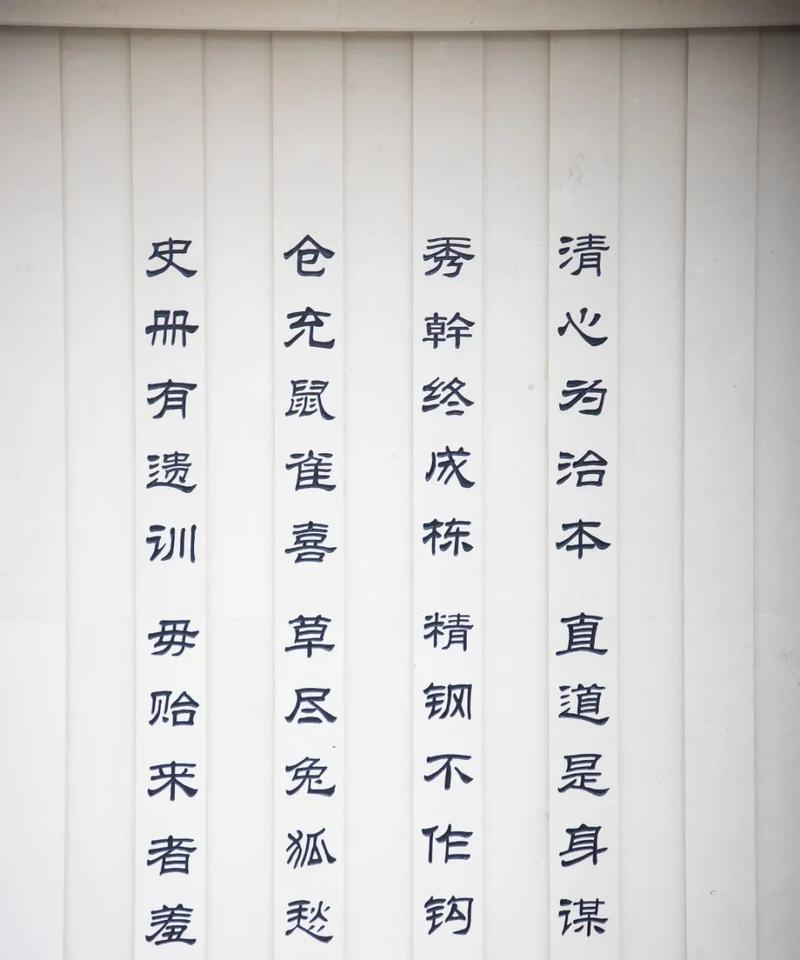 清心为治本 直道是身谋
秀幹终成栋 精钢不作钩
仓充鼠雀喜 草尽兔狐愁
史册有遗训 毋贻来者羞